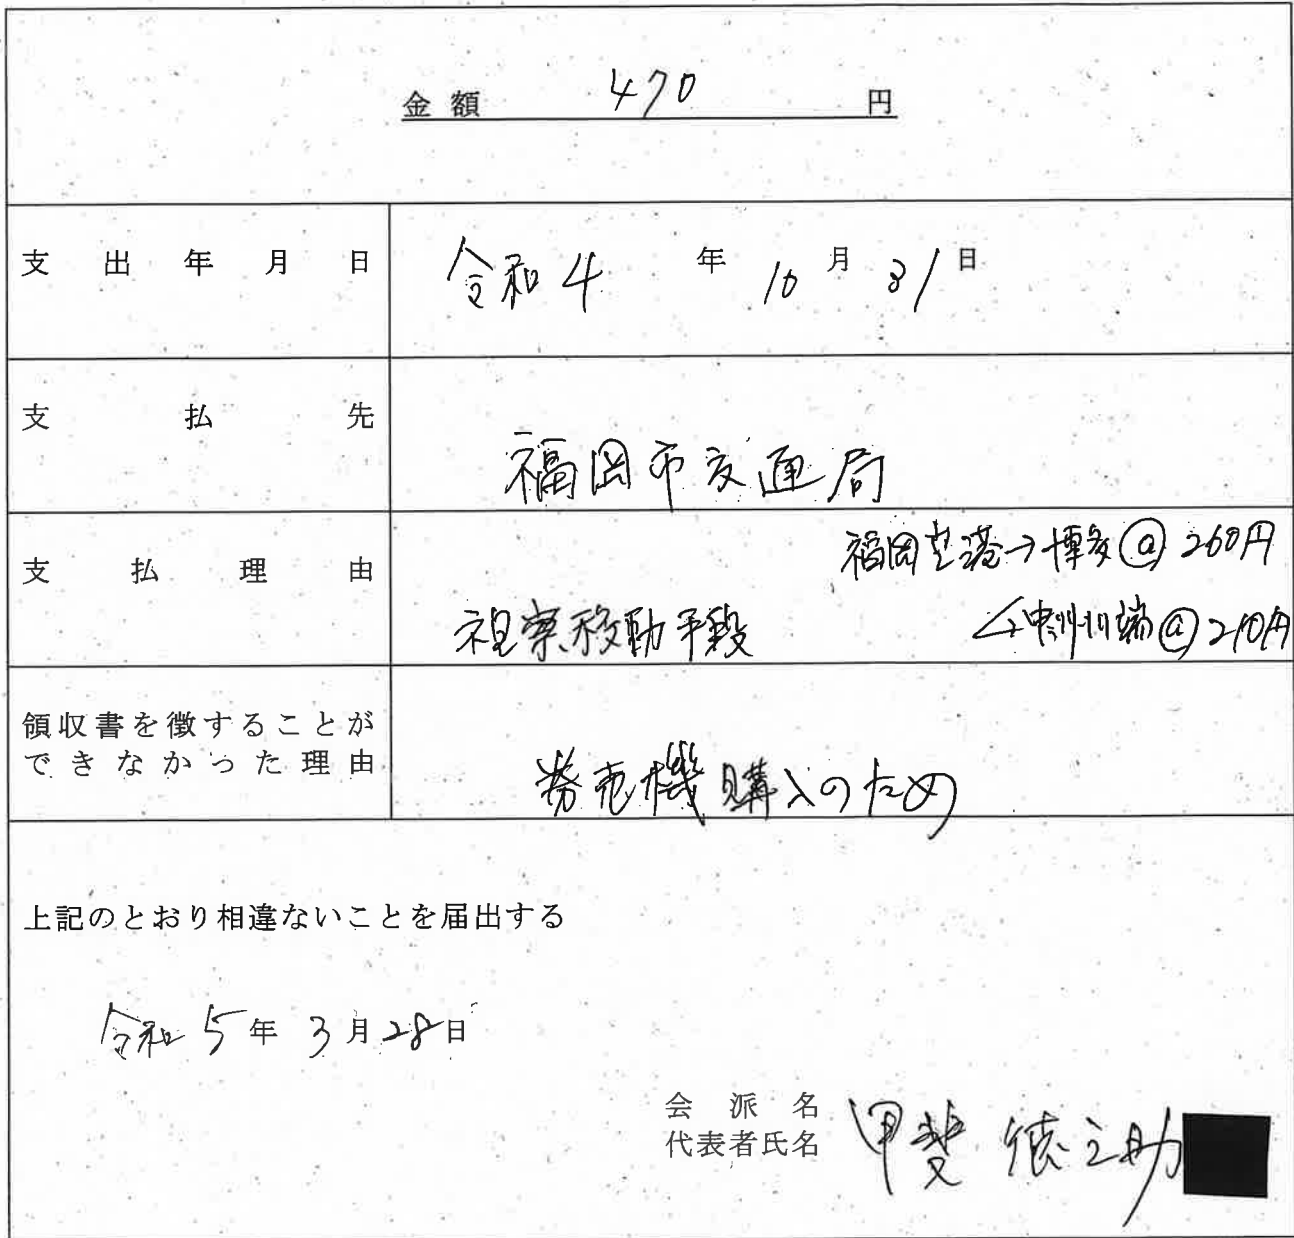 金額 470 円
支出年月日 令和4年10月31日
支払先 福岡市交通局
支払理由 視察移動手段 福岡空港→博多@260円
↳中洲川端@210円
領収書を徴することが
できなかった理由 券売機購入のため
上記のとおり相違ないことを届出する
令和5年3月28日
会派名
代表者氏名 甲斐 徳之助